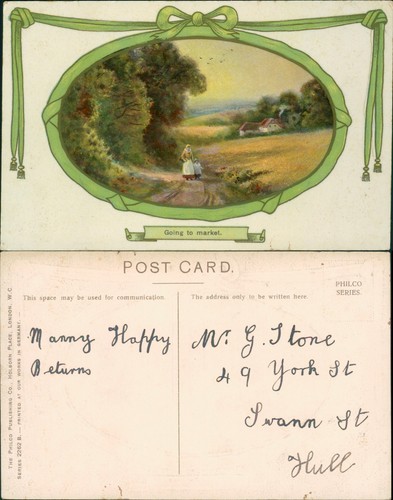 Going to market.
POST CARD.
This space may be used for communication.
The address only to be written here.
PHILCO
SERIES.
Manny Happy
Returns
Mr G. Stone
49 York St
Swann St
Hull
THE PHILCO PUBLISHING CO., HOLBORN PLACE, LONDON, W.C
SERIES 2262 B. — PRINTED AT OUR WORKS IN GERMANY.—